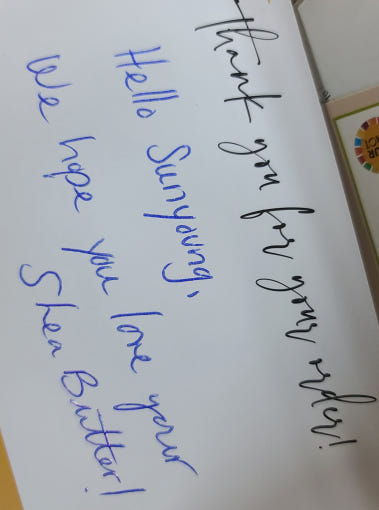 Thank you for your order!
Hello Sunyoung,
We hope you love your
Shea Butter!